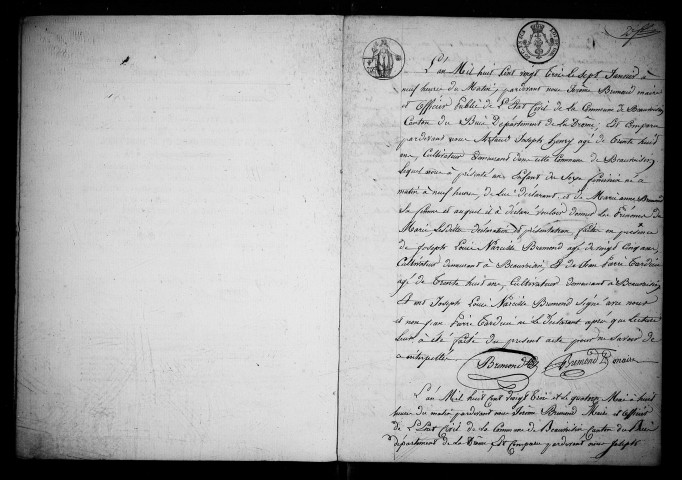 L'an Mil huit Cent vingt Trois le Sept Janvier à
neuf heures du Matin, pardevant nous Jerome Bremond maire
et Officier Public de L'Etat Civil de la Commune de Beauvoisin
Canton du Buis Département de la Drôme, Est Comparu
pardevant nous Artaud Joseph Henry agé de Trente huit
ans, Cultivateur demeurant dans cette Commune de Beauvoisin
Lequel nous à présenté un Enfant du Sexe féminin né à
matin à neuf heures, de Lui déclarant, et de Marie anne Bremond
Sa femme et auquel il à déclaré vouloir donner les Prénoms de
Marie, Lesdittes déclaration et présentation faites en présence
de Joseph Louis Narcisse Bremond agé de vingt Cinq ans,
Cultivateur demeurant à Beauvoisin, et de Jean Pierre Tardieu
agé de Trente huit ans, Cultivateur demeurant à Beauvoisin
Et ont Joseph Louis Narcisse Bremond Signé avec nous
et non Jean Pierre Tardieu ni le Déclarant après que Lecture
Leur à été faite du present acte pour ne Savoir de
ce interpellés
Bremond Bremond maire
L'an Mil huit Cent vingt Trois et le quatorze Mai à huit
heures du matin pardevant nous Jerôme Bremond Maire et Officier
de L'Etat Civil de la Commune de Beauvoisin Canton du Buis
département de la Drôme, Est Comparu pardevant nous Joseph